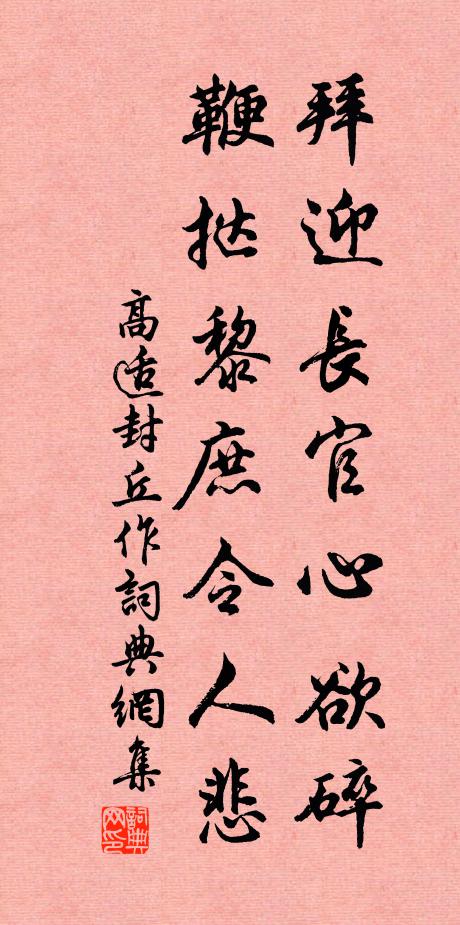 拜迎長官心欲碎
鞭撻黎庶令人悲
高适封丘作詞典網集
詞典
网印